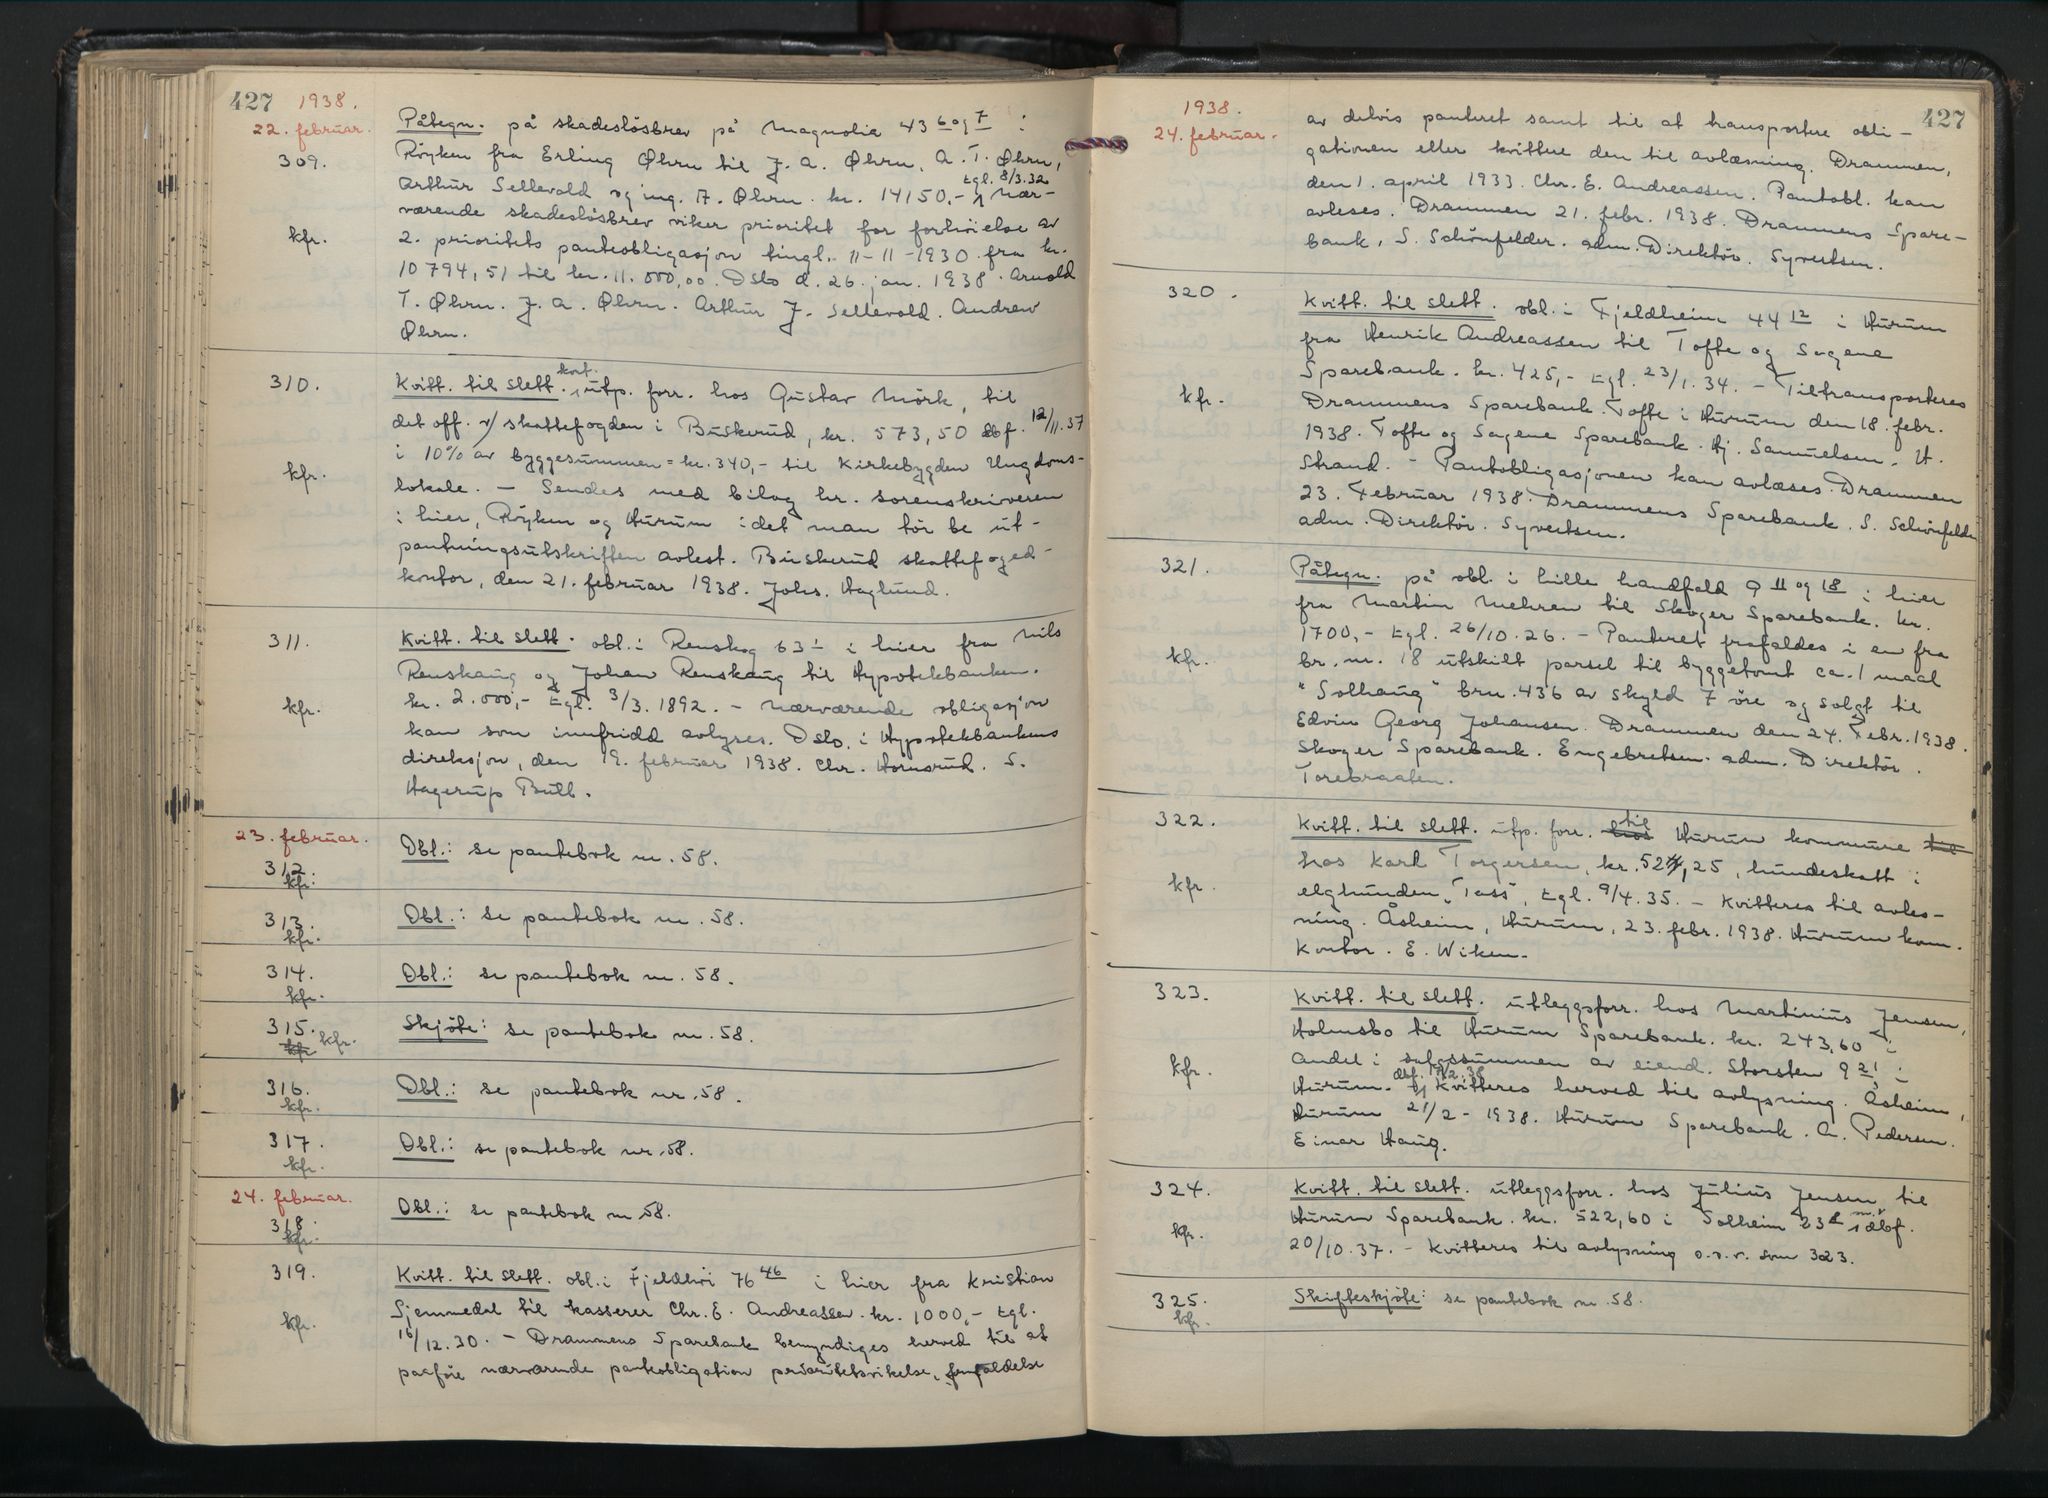 427 1938.
22. februar.
309.
kfr.
Påtegn. på skadeslösbrev på Magnolia 43 6 og 7 i
Röyken fra Erling Øhrn til J. A. Øhrn, A. T. Øhrn,
Arthur Sellevold og ing. A. Øhrn. kr. 14150,- tgl. 8/3.32 nær-
værende skadeslösbrev viker prioritet for forhöielse av
2. prioritets panteobligasjon tingl. 11-11-1930 fra kr.
10794,51 til kr. 11.000,00. Oslo d. 26. jan. 1938. Arnold
T. Øhrn. J. A. Øhrn. Arthur J. Sellevold. Andrew
Øhrn.
310.
kfr.
Kvitt. til slett. kort. utp. forr. hos Gustav Mörk, til
det off. v/ skattefogden i Buskerud, kr. 573,50 dbf. 12/11.37
i 10% av byggesummen = kr. 340,- til Kirkebygden Ungdoms-
lokale. - Sendes med bilag hr. sorenskriveren
i hier, Röyken og Hurum idet man tör be ut-
pantningsutskriften avlest. Buskerud skattefoged-
kontor, den 21. februar 1938. Johs. Haglund.
311.
kfr.
Kvitt. til slett. obl. i Renskog 63 1 i hier fra Nils
Renskaug og Johan Renskaug til Hypotekbanken.
kr. 2.000,- tgl. 3/3.1892. - Nærværende obligasjon
kan som innfridd avlyses. Oslo, i Hypotekbankens
direksjon, den 19. februar 1938. Chr. Hornsrud. S.
Hagerup Bull.
23. februar.
312.
kfr.
Obl.: se pantebok nr. 58.
313.
kfr.
Obl.: se pantebok nr. 58.
314.
kfr.
Obl.: se pantebok nr. 58.
315.
kfr. kfr.
Skjöte: se pantebok nr. 58.
316.
kfr.
Obl.: se pantebok nr. 58.
317.
kfr.
Obl.: se pantebok nr. 58.
24. februar.
318.
kfr.
Obl.: se pantebok nr. 58.
319.
kfr.
Kvitt. til slett. obl. i Fjeldhöi 76 46 i hier fra Kristian
Gjemmedal til kasserer Chr. E. Andreassen. kr. 1000,- tgl.
16/12.30. - Drammens Sparebank bemyndiges herved til at
paaföre nærværende panteobligation prioritetsvikelse, frafaldelse
1938.
24. februar.
427
av delvis panteret samt til at transportere obli-
gationen eller kvittere den til avlæsning. Drammen,
den 1. april 1933. Chr. E. Andreassen. Pantobl. kan
avleses. Drammen 21. febr. 1938. Drammens Spare-
bank. S. Schönfelder. adm. Direktör. Syvertsen.
320.
kfr.
Kvitt. til slett. obl. i Fjeldheim 44 12 i Hurum
fra Henrik Andreassen til Tofte og Sagene
Sparebank. kr. 425,- tgl. 23/1.34. - Tiltransporteres
Drammens Sparebank. Tofte i Hurum den 18. febr.
1938. Tofte og Sagene Sparebank. Hj. Samuelsen. H.
Strand. - Pantobligasjonen kan avlæses. Drammen
23. Februar 1938. Drammens Sparebank. S. Schönfelder
adm. Direktör. Syvertsen.
321.
kfr.
Påtegn. på obl. i lille handfald 9 11 og 18 i hier
fra Martin Mehren til Skoger Sparebank. kr.
1700,- tgl. 26/10.26. - Panteret frafaldes i en fra
br. nr. 18 utskilt parsel til byggetomt ca. 1 maal
"Solhaug" brn. 436 av skyld 7 öre og solgt til
Edvin Georg Johansen. Drammen den 24. Febr. 1938.
Skoger Sparebank. Engebretsen. adm. Direktör.
Torebraaten.
322.
kfr.
Kvitt. til slett. utp. forr. hos til Hurum kommune til
hos Karl Torgersen, kr. 52,25, hundeskatt i
elghunden "Tass", tgl. 9/4.35. - Kvitteres til avles-
ning. Åsheim, Hurum, 23. febr. 1938. Hurum kom.
kontor. E. Wiken.
323.
kfr.
Kvitt. til slett. utleggsforr. hos Martinius Jensen,
Holmsbo til Hurum Sparebank. kr. 243,60 i
andel i salgssummen av eiend. Storsten 9 21 i
Hurum. Kvitteres herved til avlysning. Åsheim,
Hurum 21/2-1938. Hurum Sparebank. A. Pedersen.
Einar Haug.
324.
kfr.
Kvitt. til slett. utleggsforr. hos Julius Jensen til
Hurum Sparebank. kr. 522,60 i Solheim 23 dbf.
20/10.37. - Kvitteres til avlysning o.s.v. som 323.
325.
kfr.
Skifteskjöte: se pantebok nr. 58.